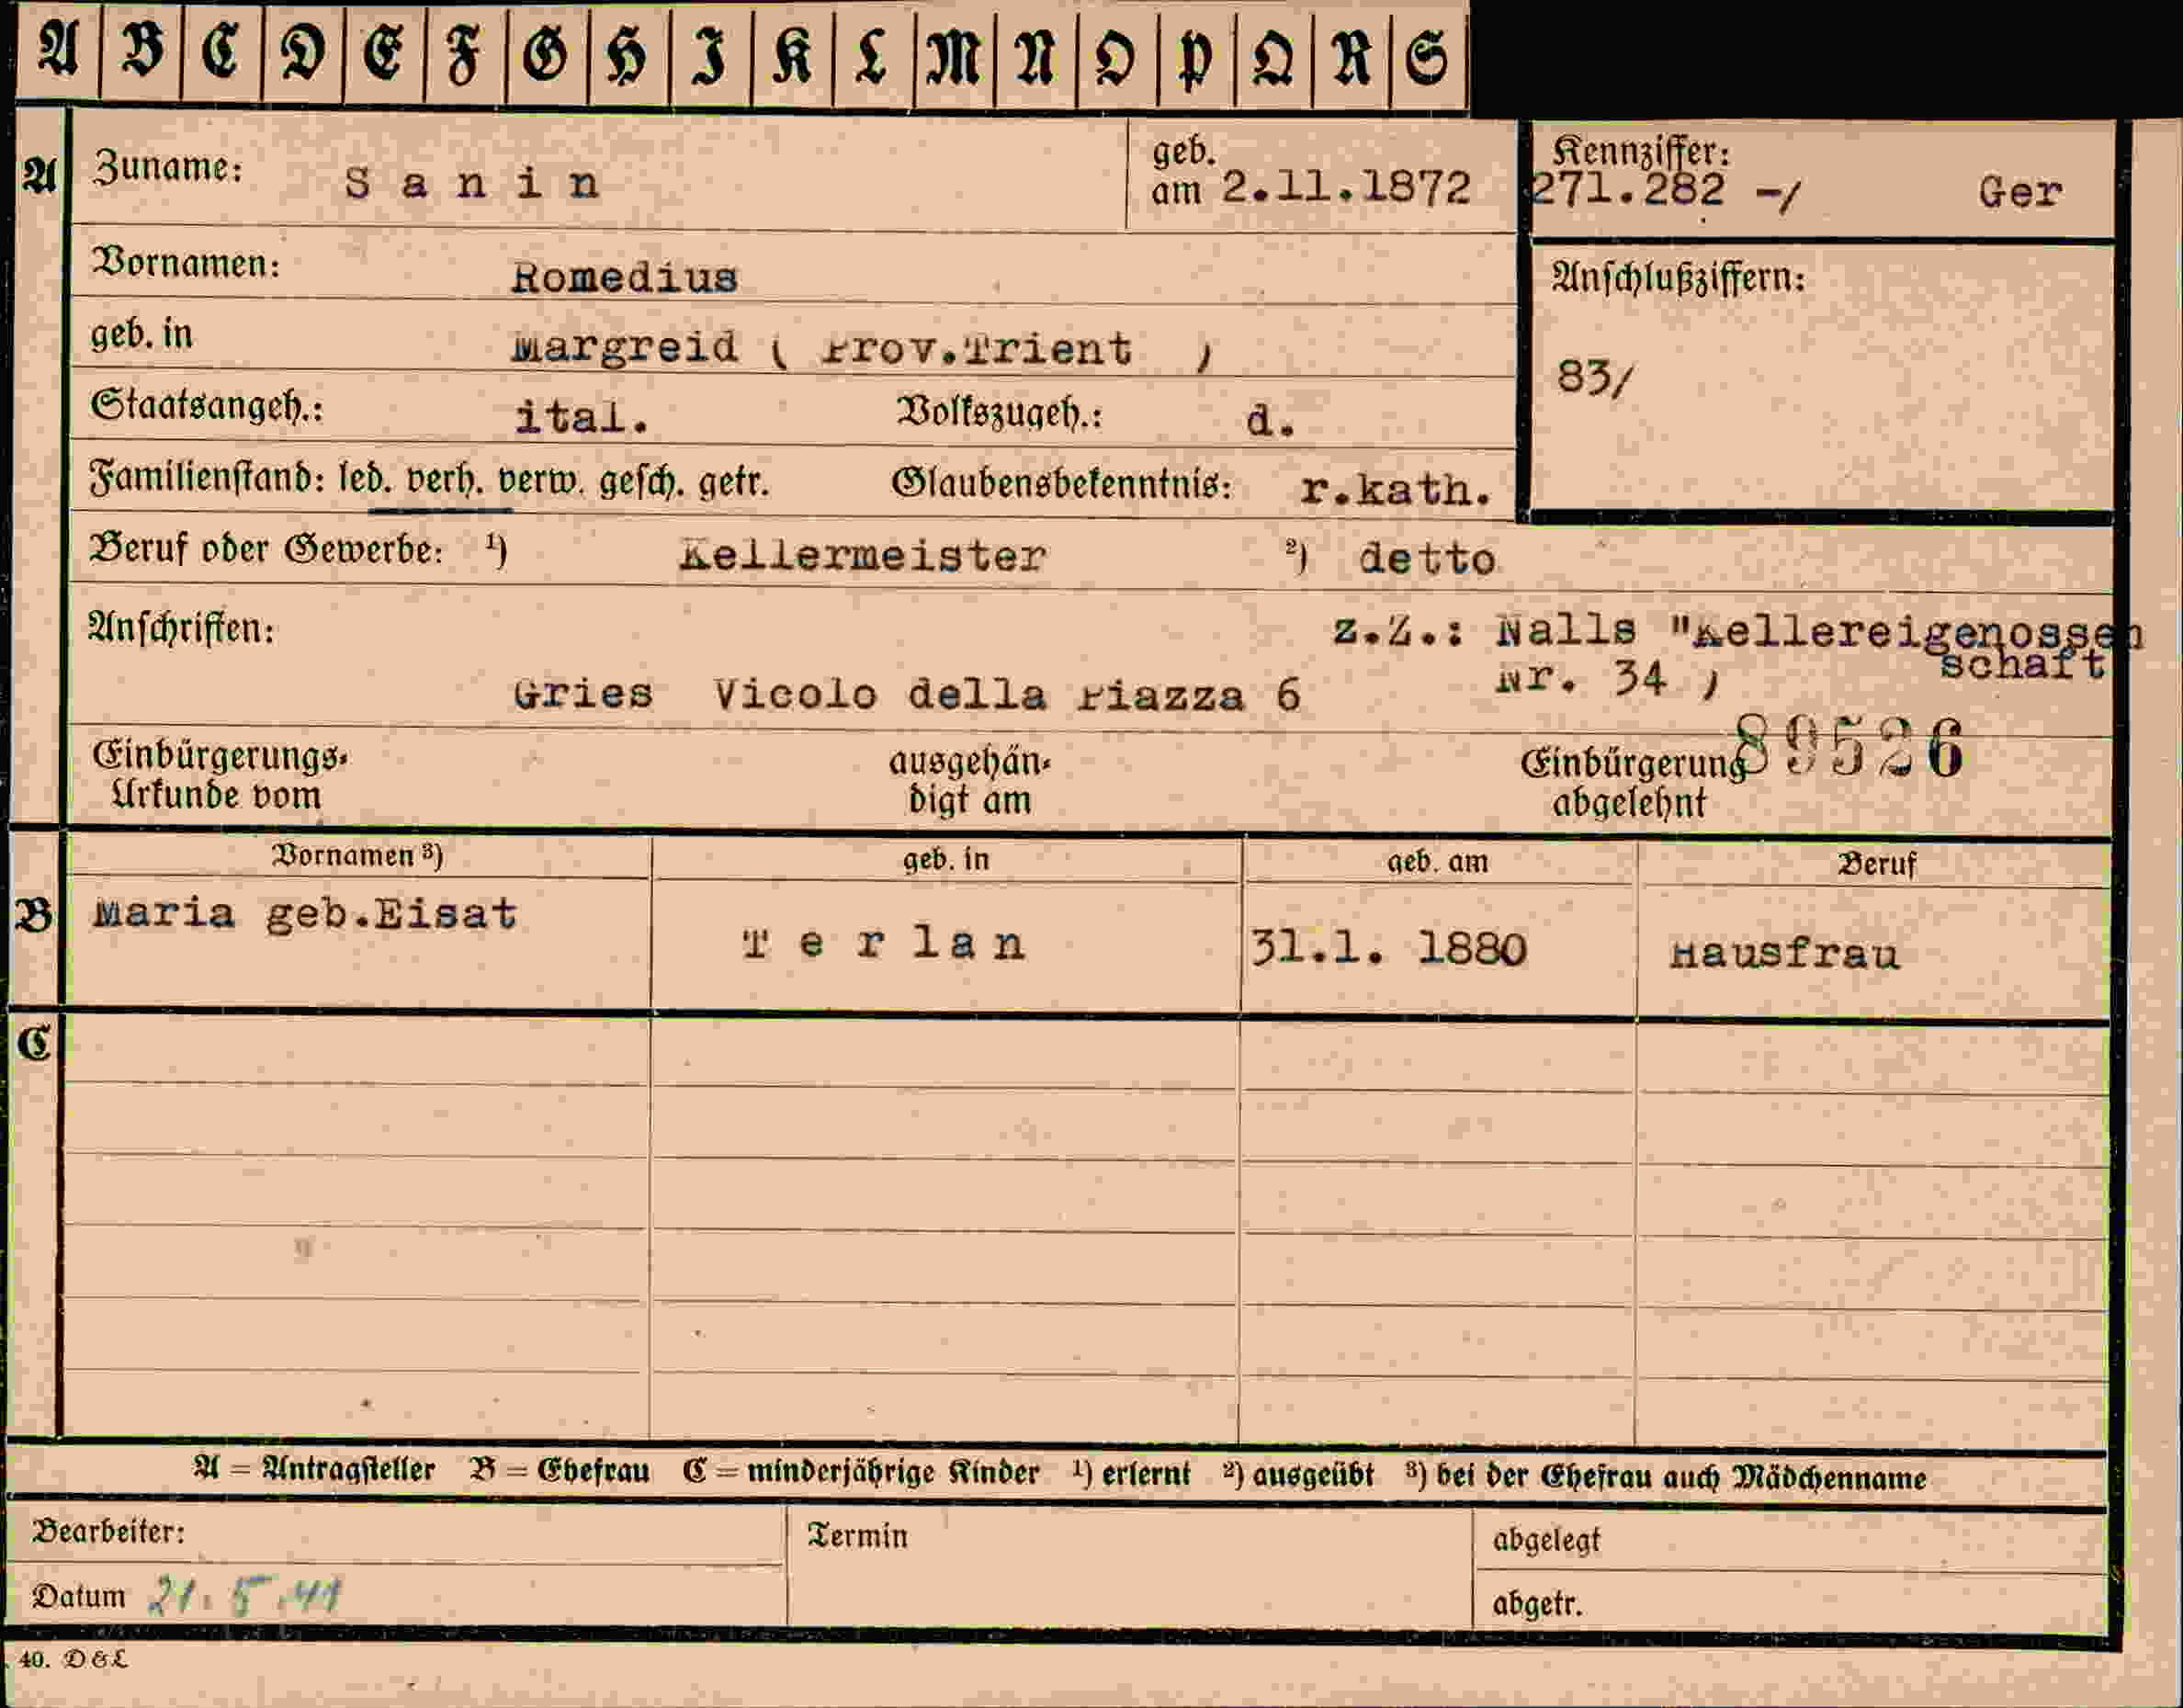 A B C D E F G H I K L M N O P Q R S
A Zuname: S a n i n geb. am 2.11.1872 Kennziffer: 271.282 -/ Ger
Vornamen: Romedius Anschlußziffern:
geb. in Margreid ( Prov.Trient )
83/
Staatsangeh.: ital. Volkszugeh.: d.
Familienstand: led. verh. verw. gesch. getr. Glaubensbekenntnis: r.kath.
Beruf oder Gewerbe: ¹) Kellermeister ²) detto
Anschriften: z.Z.: Nalls "Kellereigenossen
schaft
Gries Vicolo della Piazza 6 Nr. 34 )
Einbürgerungs- ausgehän- Einbürgerung 89526
Urkunde vom digt am abgelehnt
Vornamen ³) geb. in geb. am Beruf
B Maria geb.Eisat T e r l a n 31.1. 1880 Hausfrau
C
A = Antragsteller B = Ehefrau C = minderjährige Kinder ¹) erlernt ²) ausgeübt ³) bei der Ehefrau auch Mädchenname
Bearbeiter: Termin abgelegt
Datum 21.5.41 abgetr.
40. D&L